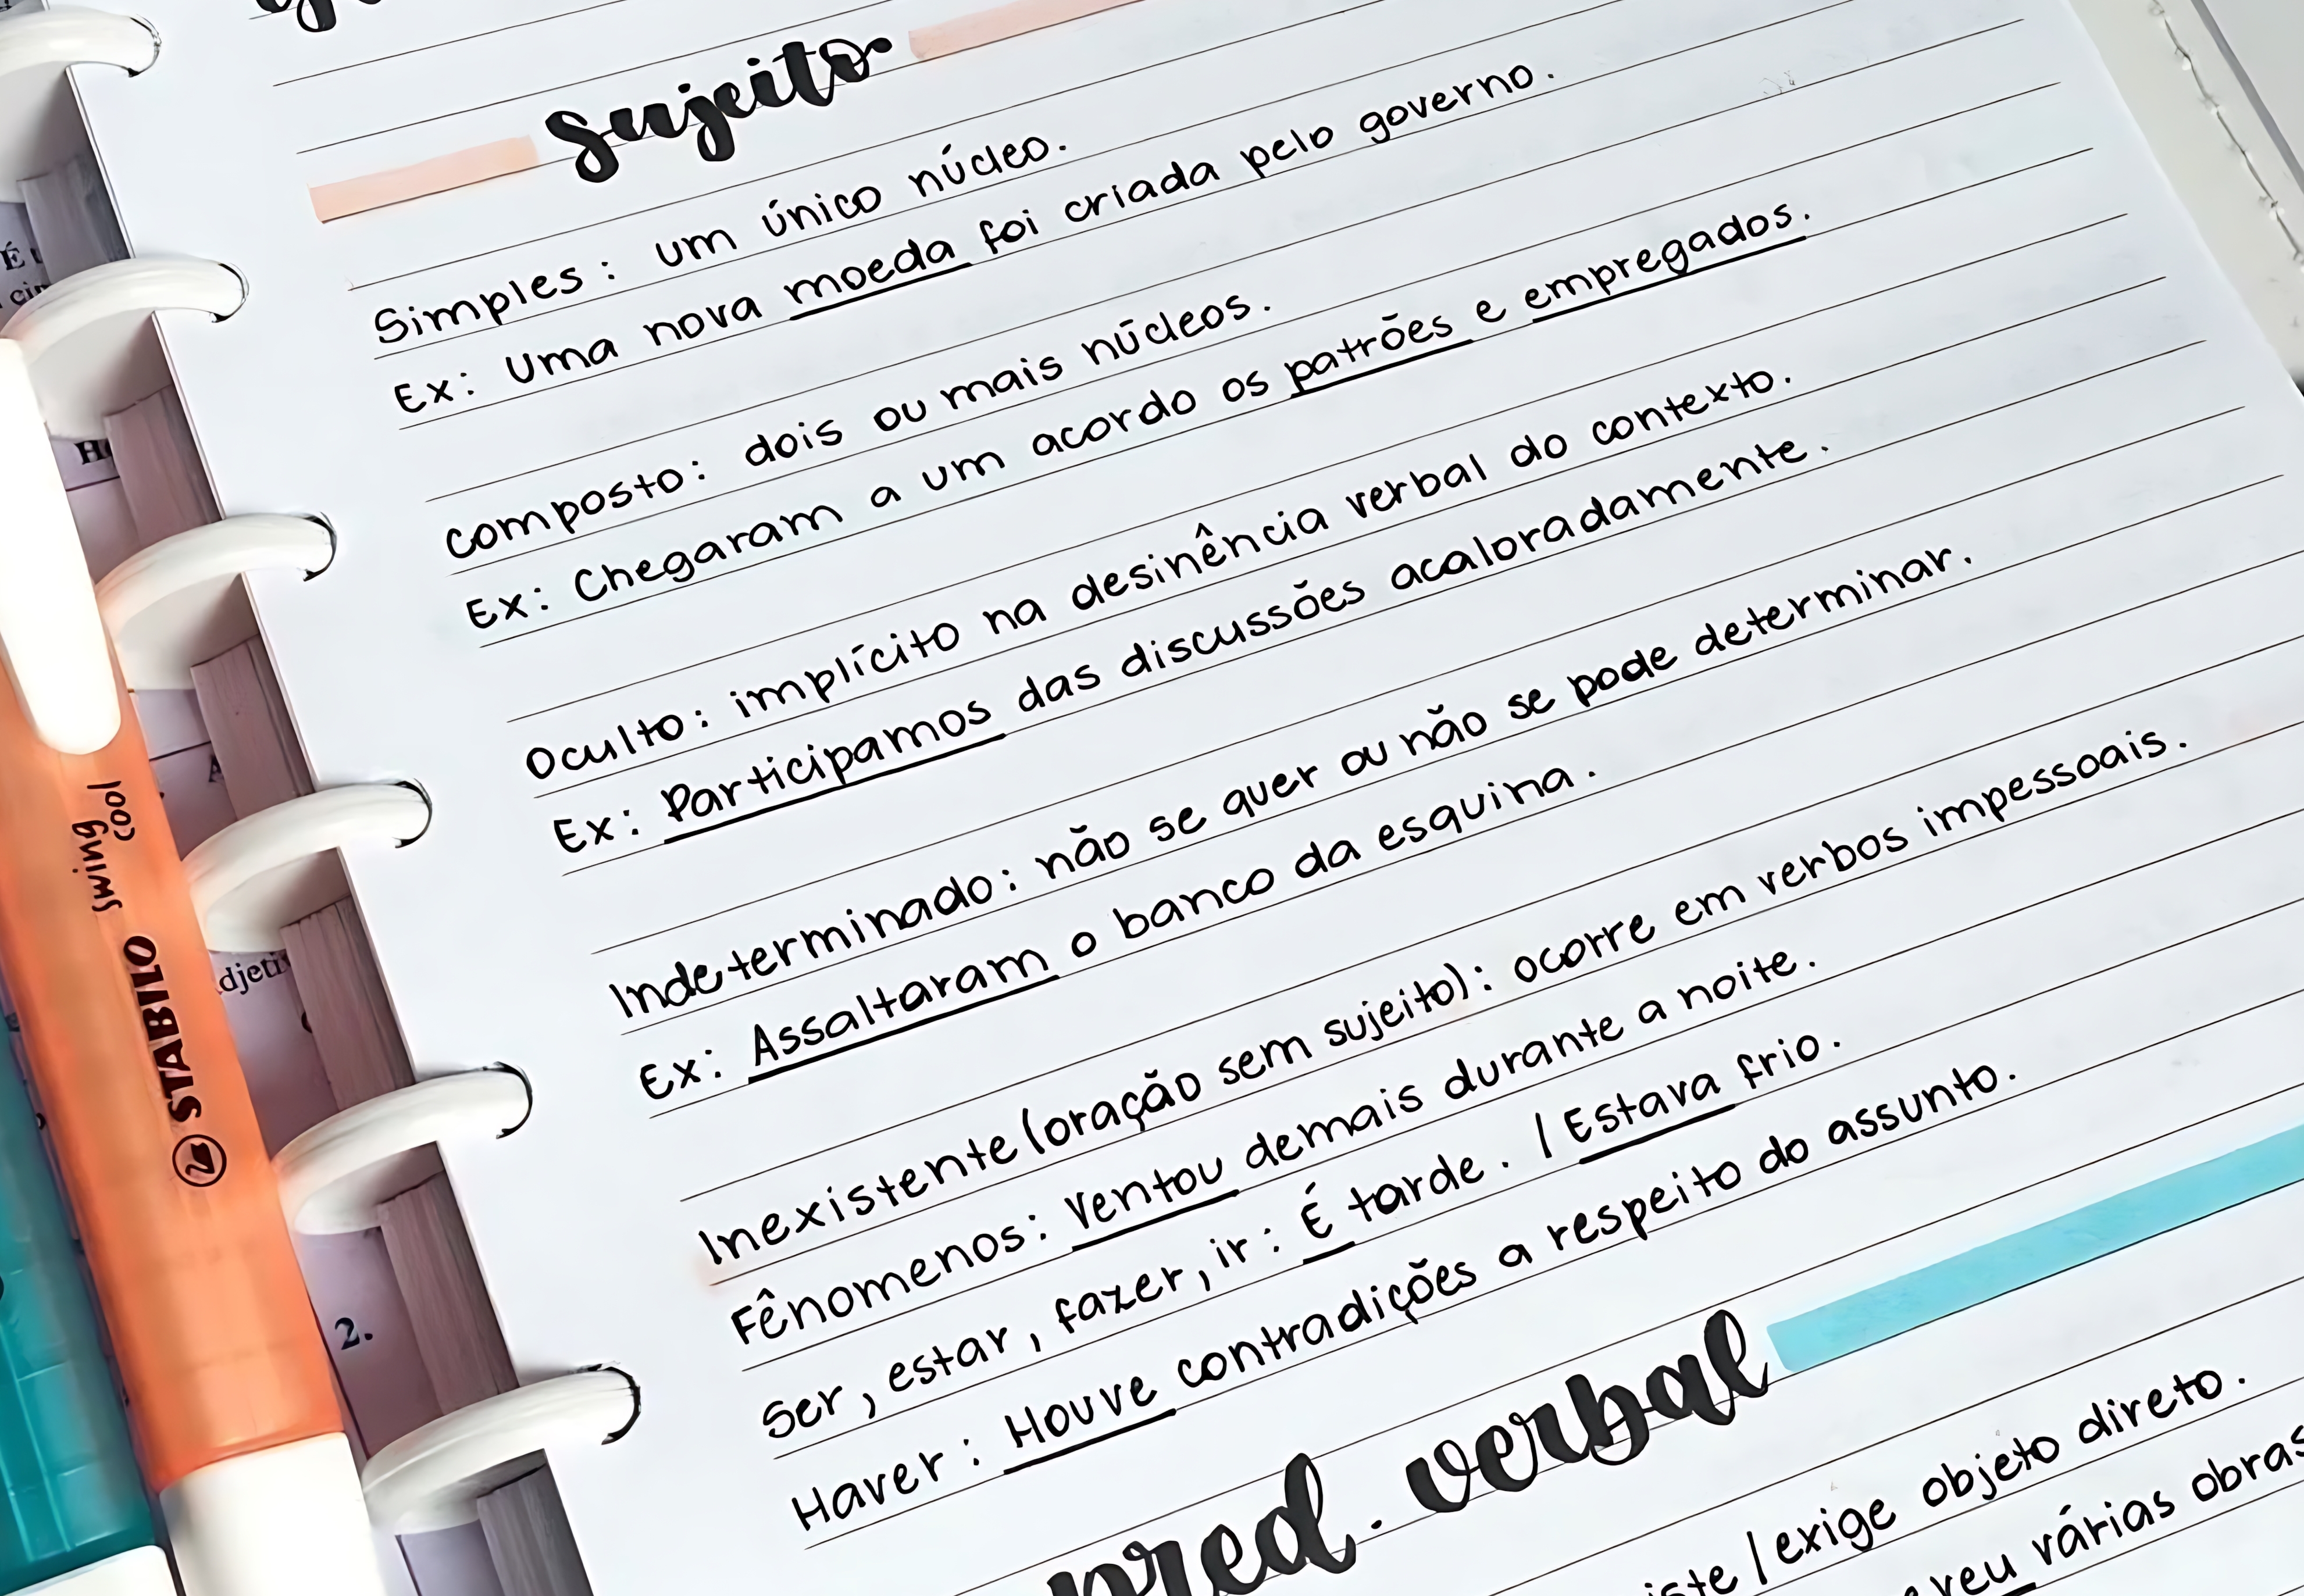 Sujeito
Simples: um único núcleo.
Ex: Uma nova moeda foi criada pelo governo.
Composto: dois ou mais núcleos.
Ex: Chegaram a um acordo os patrões e empregados.
Oculto: implícito na desinência verbal do contexto.
Ex: Participamos das discussões acaloradamente.
Indeterminado: não se quer ou não se pode determinar.
Ex: Assaltaram o banco da esquina.
Inexistente (oração sem sujeito): ocorre em verbos impessoais.
Fênomenos: Ventou demais durante a noite.
Ser, estar, fazer, ir: É tarde. / Estava frio.
Haver: Houve contradições a respeito do assunto.
pred. verbal
/ exige objeto direto.
várias obras
STABILO swing cool
2.